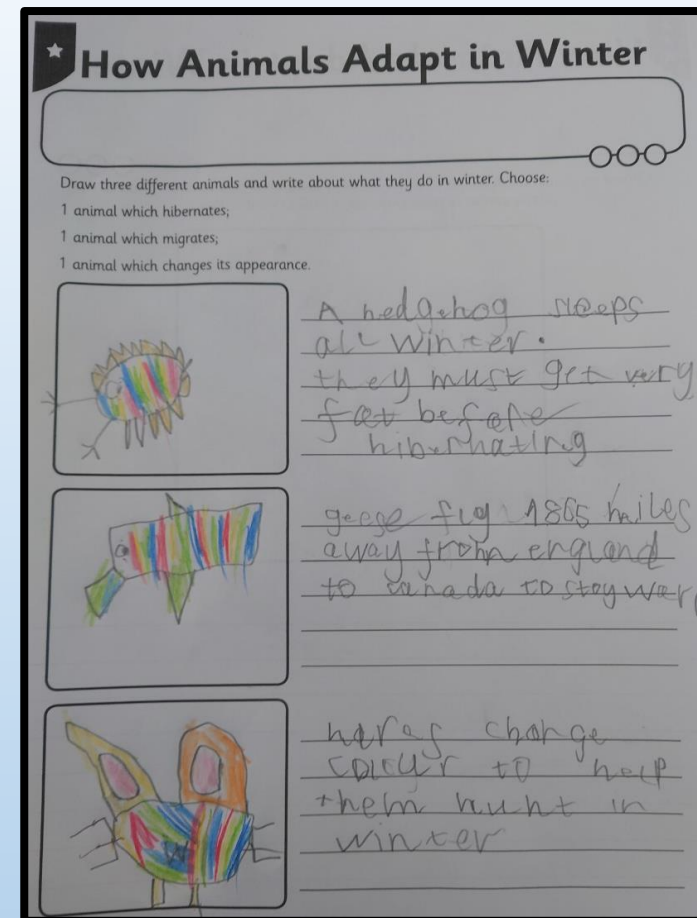 How Animals Adapt in Winter
Draw three different animals and write about what they do in winter. Choose:
1 animal which hibernates;
1 animal which migrates;
1 animal which changes its appearance.
A hedgehog sleeps
all winter.
they must get very
fat before
hibernating
geese fly 1865 miles
away from england
to canada to stay
hares change
colour to help
them hunt in
winter